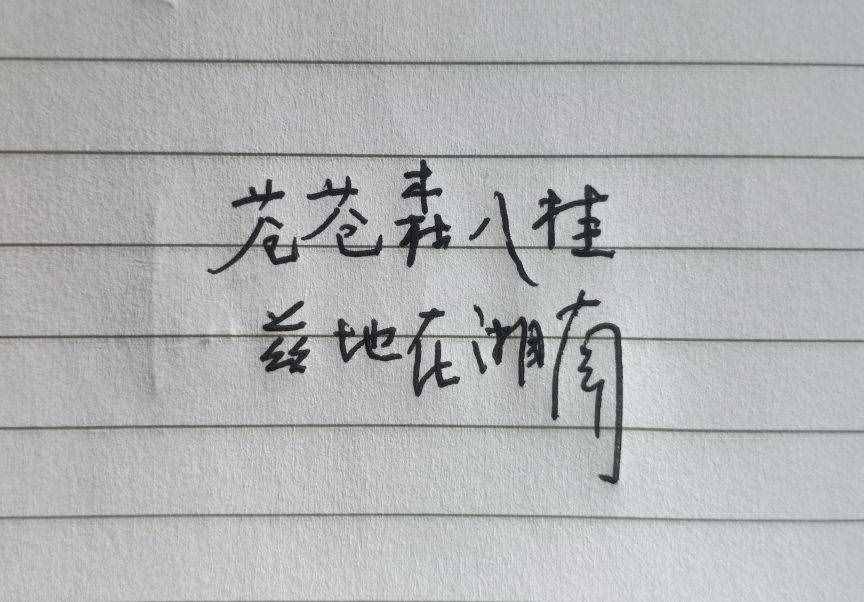 苍苍森八桂
兹地在湘南